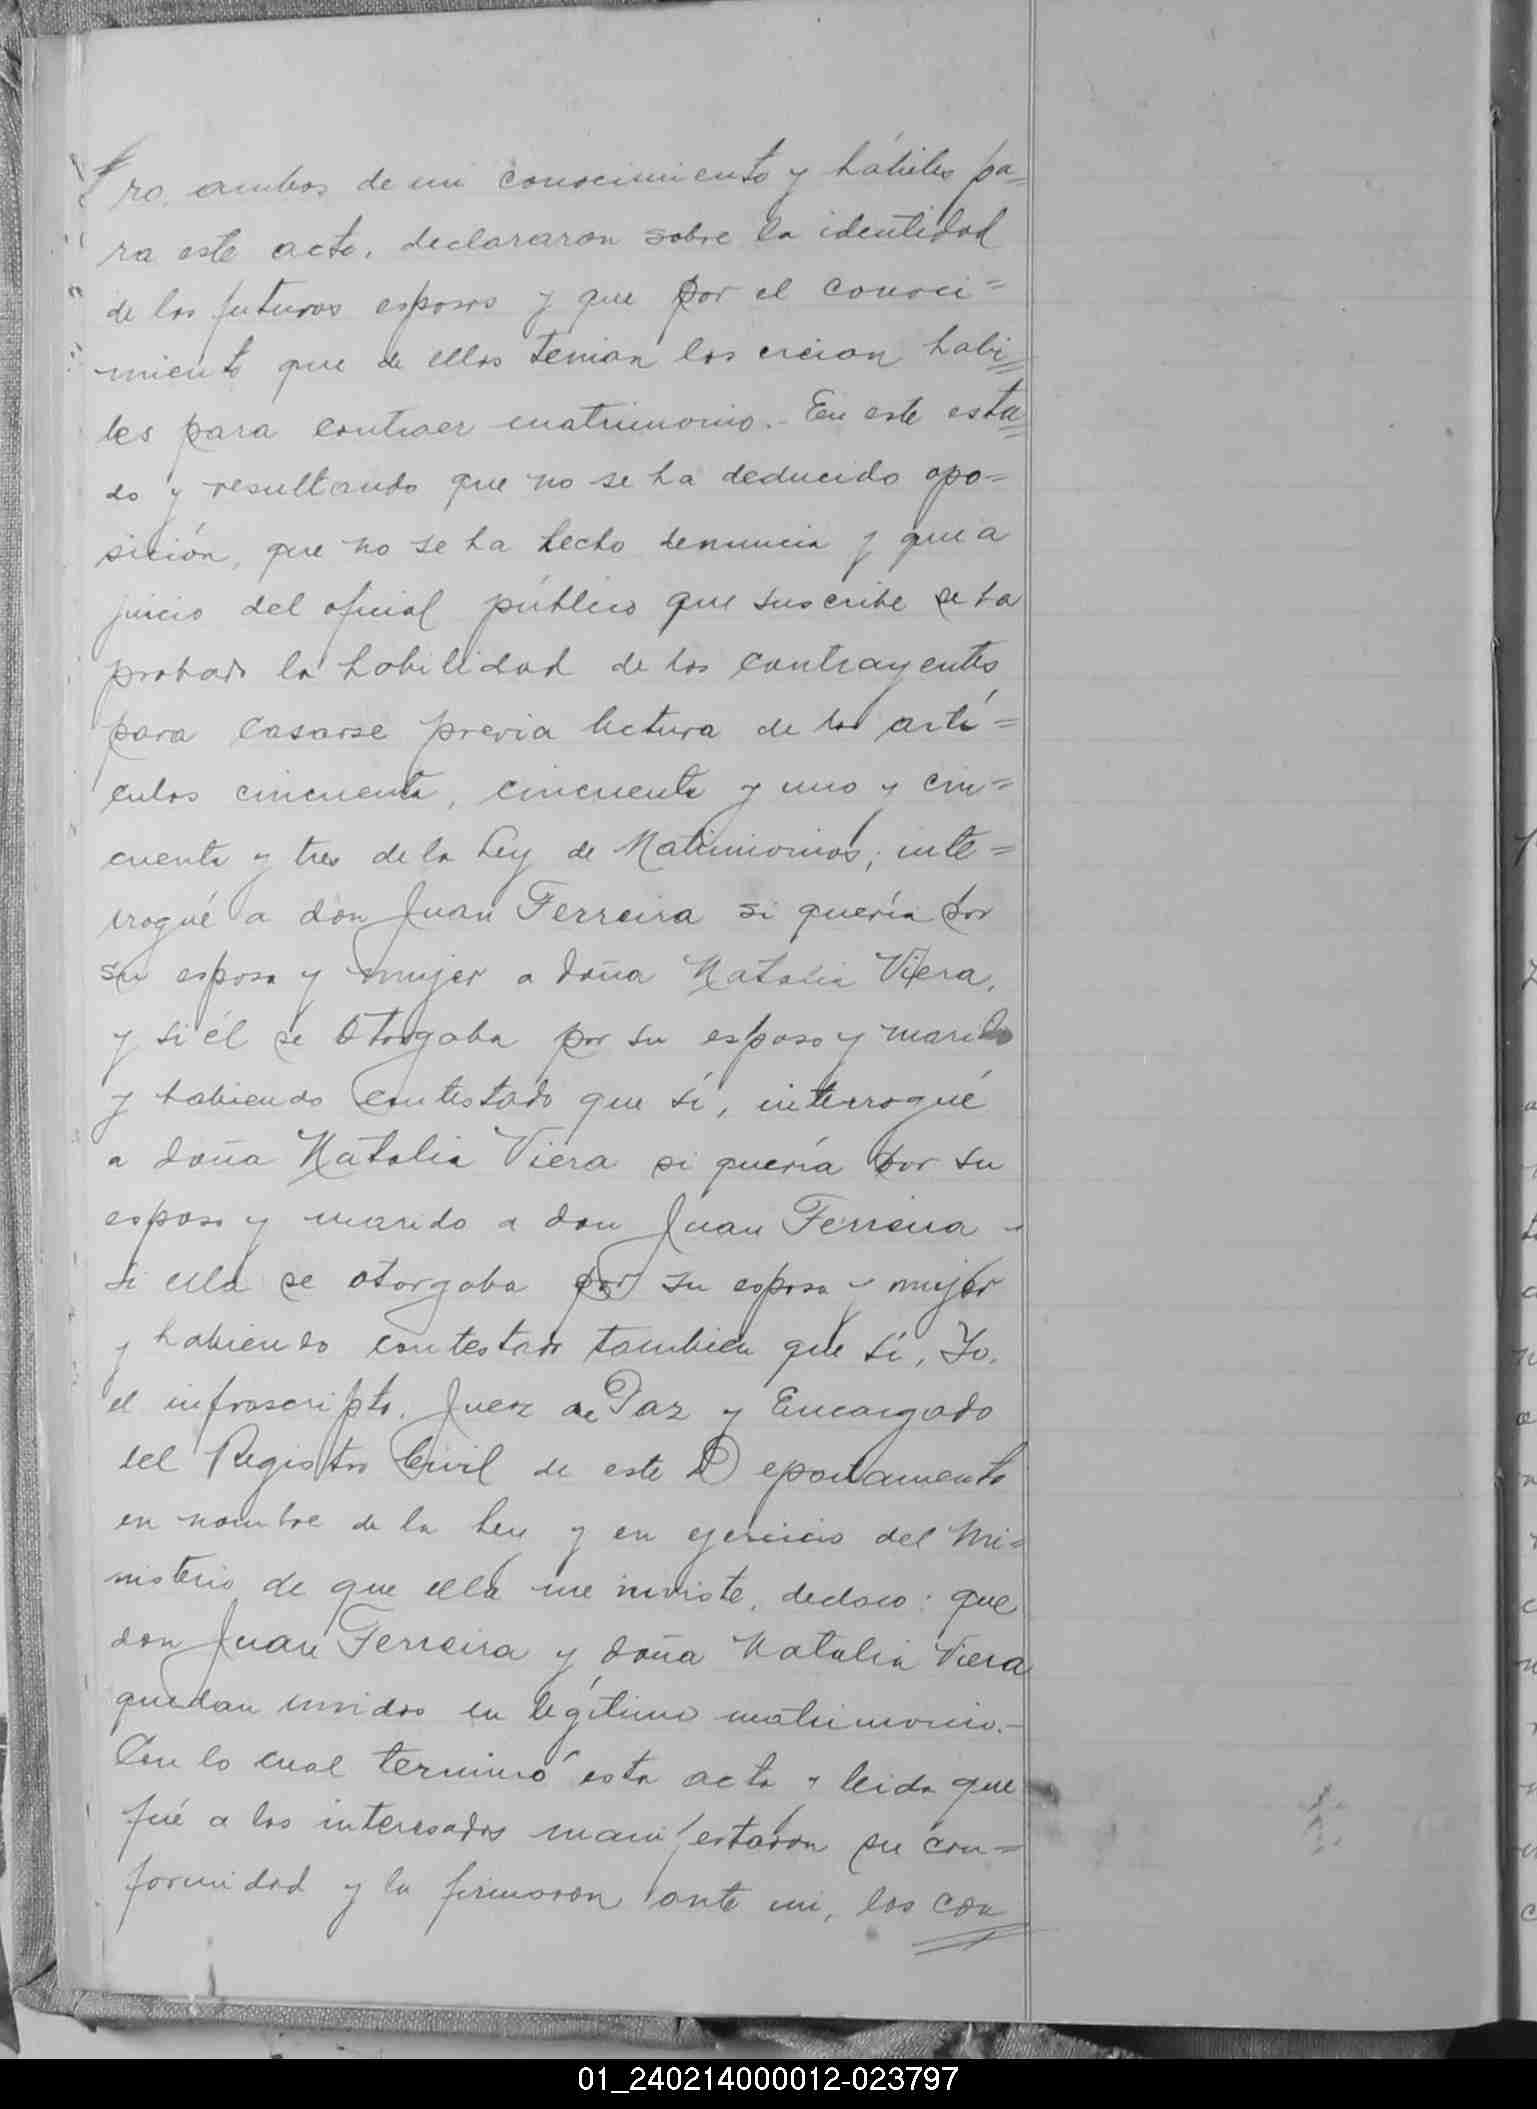 ro, ambos de mi conocimiento y hábiles pa=
ra este acto, declararon sobre la identidad
de los futuros esposos y que por el conoci=
miento que de ellos tenian los creian habi=
les para contraer matrimonio.- En este esta=
do y resultando que no se ha deducido opo=
sición, que no se ha hecho denuncia y que a
juicio del oficial público que suscribe se ha
probado la habilidad de los contrayentes
para casarse previa lectura de los artí=
culos cincuenta, cincuenta y uno y cin=
cuenta y tres de la Ley de Matrimonios; inte=
rrogué a don Juan Ferreira si quería por
su esposa y mujer a doña Natalia Viera,
y si él se otorgaba por su esposo y marido
y habiendo contestado que sí, interrogué
a doña Natalia Viera si quería por su
esposo y marido a don Juan Ferreira y
si ella se otorgaba por su esposa y mujer
y habiendo contestado tambien que sí, Yo,
el infrascripto, Juez de Paz y Encargado
del Registro Civil de este Departamento
en nombre de la Ley y en ejercicio del Mi=
nisterio de que ella me inviste, declaro: que
don Juan Ferreira y doña Natalia Viera
quedan unidos en legítimo matrimonio.-
Con lo cual terminó esta acta y leida que
fué a los interesados manifestaron su con=
formidad y la firmaron ante mi, los con
01_240214000012-023797